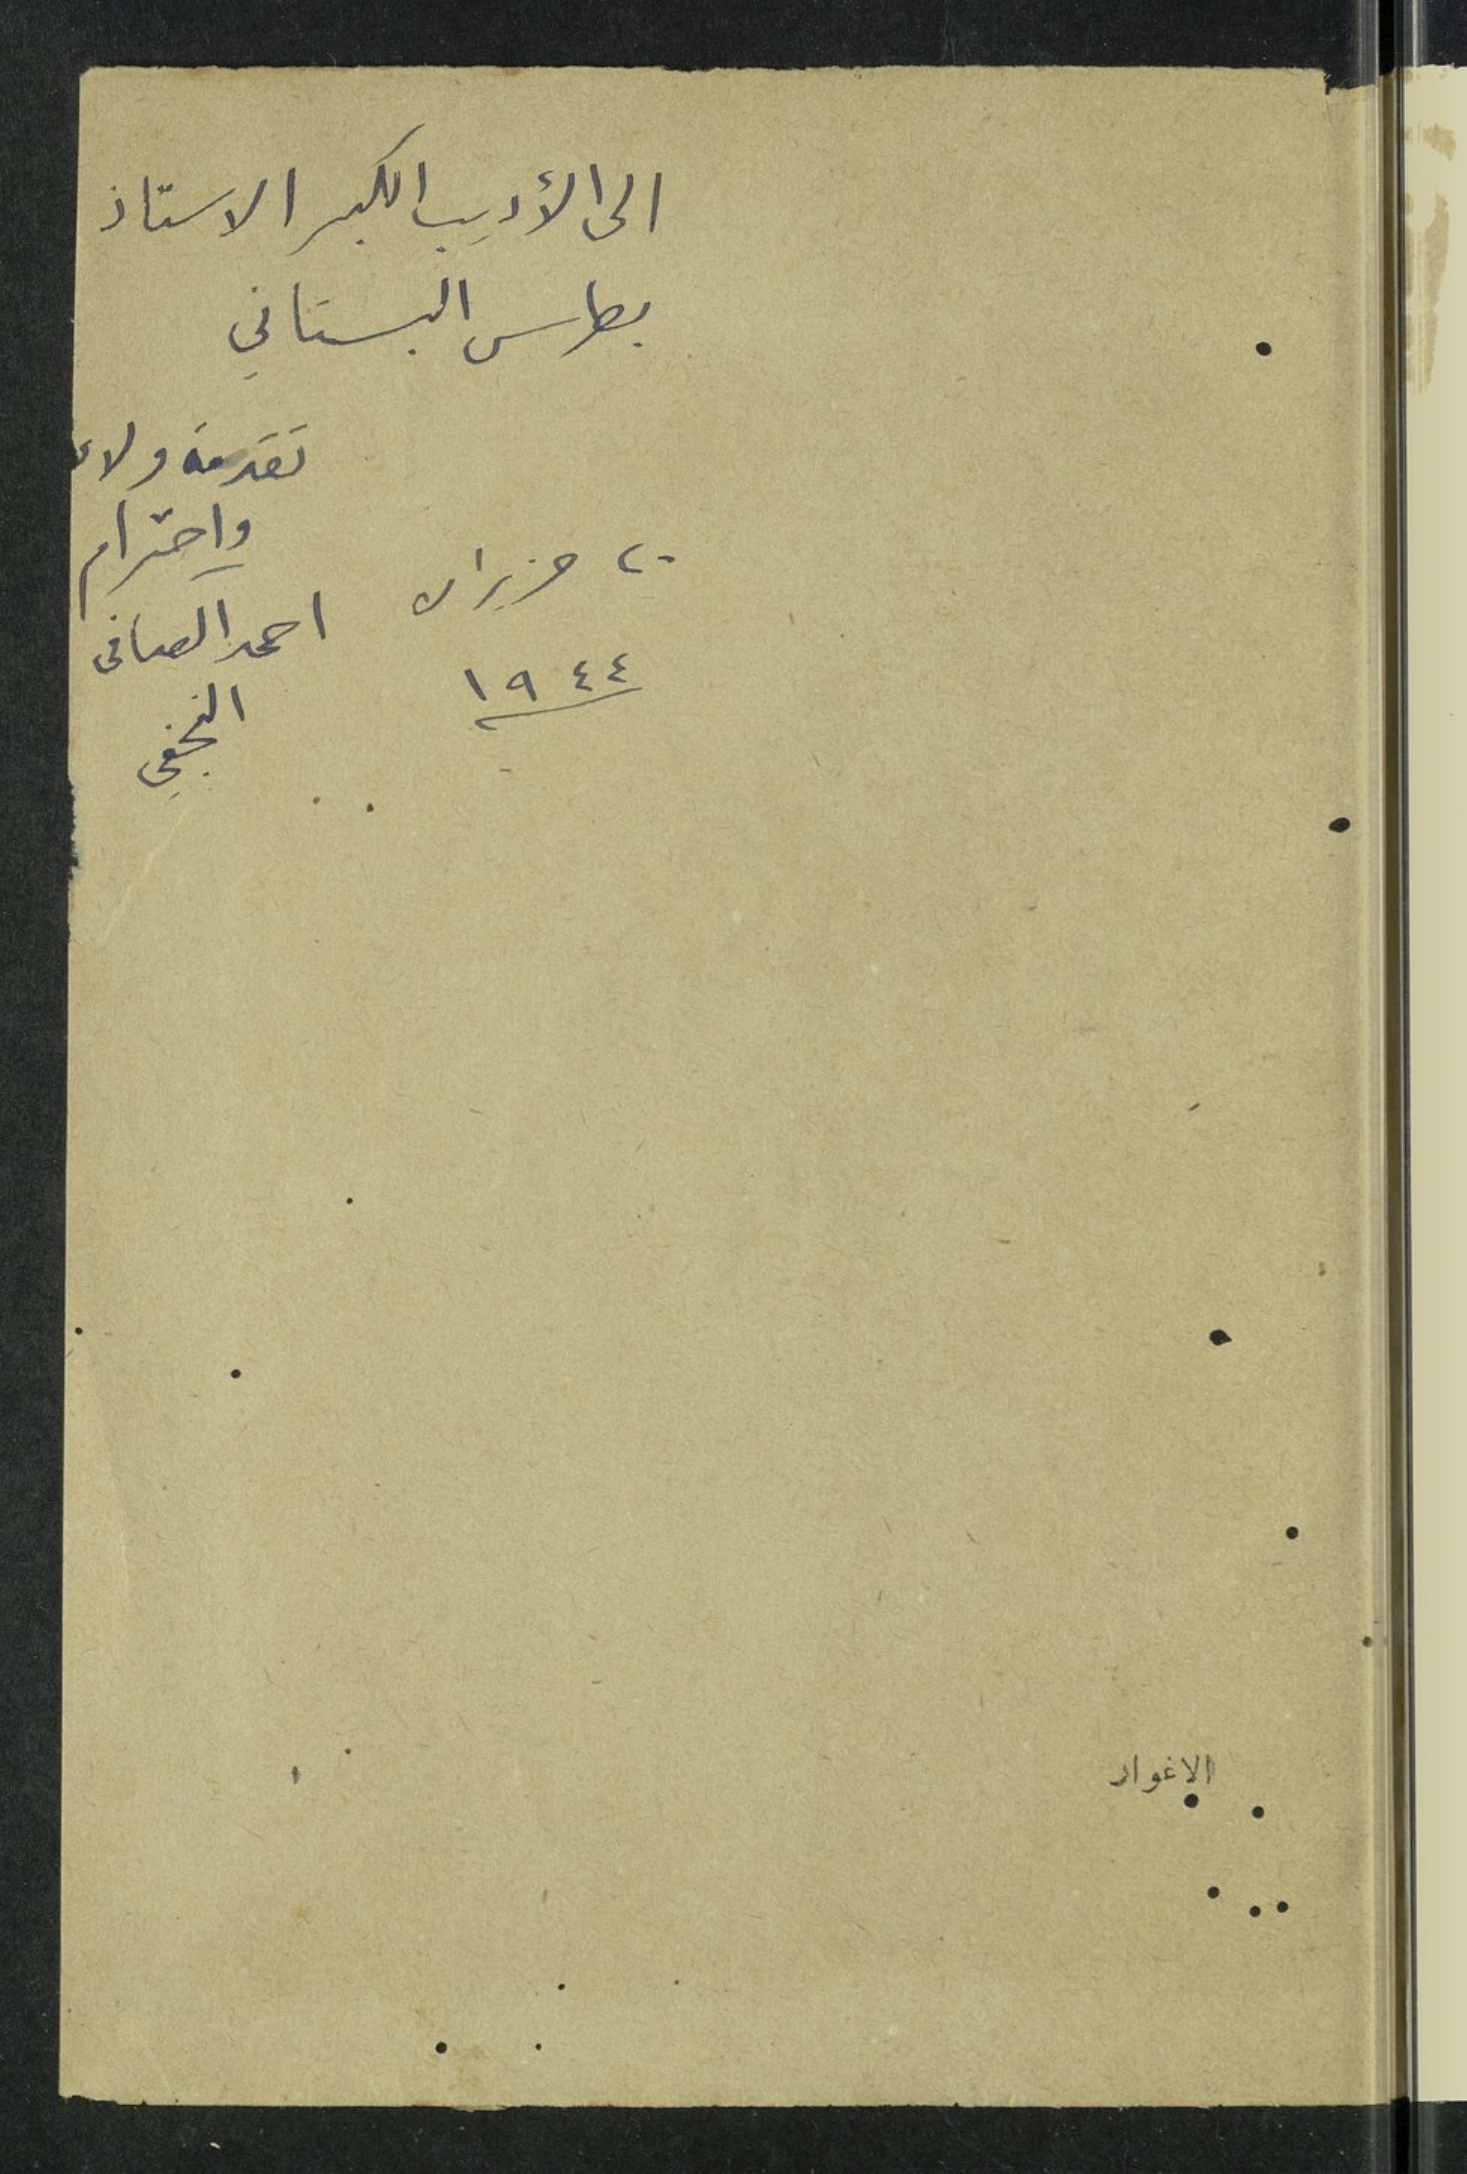 الى الأديب الكبير الاستاذ
بطرس البستاني
تقدمة ولاء
واحترام
احمد الصافي
النجفي
٢٠ حزيران
١٩٤٤
الاغوار